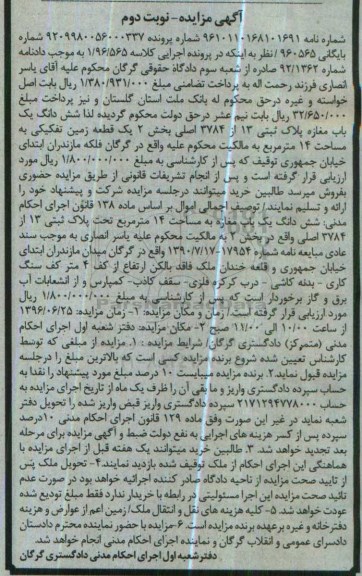 آگهی مزایده - نوبت دوم
شماره نامه ۹۶۱۰۱۱۰۱۶۸۱۰۱۶۹۱ شماره پرونده ۹۲۰۹۹۸۰۰۵۶۰۰۰۳۳۷ شماره
بایگانی ۹۶۰۵۶۵ / نظر به اینکه در پرونده اجرایی کلاسه ۱/۹۶/۵۶۵ به موجب دادنامه
شماره ۹۲/۱۳۶۲ صادره از شعبه سوم دادگاه حقوقی گرگان محکوم علیه آقای یاسر
انصاری فرزند رحمت اله به پرداخت تضامنی مبلغ ۱/۳۸۰/۹۳۱/۰۰۰ ریال بابت اصل
خواسته و غیره درحق محکوم له بانک ملت استان گلستان و نیز پرداخت مبلغ
۳۲/۶۵۰/۰۰۰ ریال بابت نیم عشر درحق دولت محکوم گردیده لذا شش دانگ یک
باب مغازه پلاک ثبتی ۱۳ از ۳۷۸۴ اصلی بخش ۲ یک قطعه زمین تفکیکی به
مساحت ۱۴ مترمربع به مالکیت محکوم علیه واقع در گرگان فلکه مازندران ابتدای
خیابان جمهوری توقیف که پس از کارشناسی به مبلغ ۱/۸۰۰/۰۰۰/۰۰۰ ریال مورد
ارزیابی قرار گرفته است و پس از انجام تشریفات قانونی از طریق مزایده حضوری
بفروش میرسد طالبین خرید میتوانند درجلسه مزایده شرکت و پیشنهاد خود را
ارائه و تسلیم نمایند/ توصیف اجمالی اموال بر اساس ماده ۱۳۸ قانون اجرای احکام
مدنی: شش دانگ یک باب مغازه به مساحت ۱۴ مترمربع تحت پلاک ثبتی ۱۳ از
۳۷۸۴ اصلی واقع در بخش ۲ به مالکیت محکوم علیه یاسر انصاری به موجب سند
عادی مبایعه نامه شماره ۱۷۹۵۴-۱۳۹۰/۷/۱۷ واقع در گرگان میدان مازندران ابتدای
خیابان جمهوری و قلعه خندان ملک فاقد بالکن ارتفاع از کف ۴ متر کف سنگ
کاری - بدنه کاشی - درب کرکره فلزی- سقف کاذب- کمپارس و از انشعابات آب
برق و گاز برخوردار است که پس از کارشناسی به مبلغ ۱/۸۰۰/۰۰۰/۰۰۰ ریال
مورد ارزیابی قرار گرفته است./ زمان و مکان مزایده: ۱- زمان مزایده: ۱۳۹۶/۰۶/۲۵
از ساعت ۱۰/۰۰ الی ۱۱/۰۰ صبح ۲- مکان مزایده: دفتر شعبه اول اجرای احکام
مدنی (متمرکز) دادگستری گرگان/ شرایط مزایده : ۱. مزایده از مبلغی که توسط
کارشناس تعیین شده شروع برنده مزایده کسی است که بالاترین مبلغ را درجلسه
مزایده قبول نماید. ۲. برنده مزایده میبایست ۱۰ درصد مبلغ مورد پیشنهاد را نقدا به
حساب سپرده دادگستری واریز و مابقی آن را ظرف یک ماه از تاریخ اجرای مزایده به
حساب ۲۱۷۱۲۹۴۷۷۸۰۰۰ سپرده دادگستری واریز قبض واریز شده را تحویل دفتر
شعبه نماید در غیر این صورت وفق ماده ۱۲۹ قانون اجرای احکام مدنی ۱۰درصد
سپرده پس از کسر هزینه های اجرایی به نفع دولت ضبط و آگهی مزایده برای مرحله
بعد تجدید خواهد شد. ۳. طالبین خرید میتوانند یک هفته قبل از اجرای مزایده با
هماهنگی این اجرای احکام از ملک توقیف شده بازدید نمایند.۴- تحویل ملک پس
از تایید صحت مزایده از ناحیه دادگاه صادر کننده اجرائیه خواهد بود در صورت عدم
تائید صحت مزایده این اجرا مسئولیتی در رابطه با خریدار ندارد فقط مبلغ تودیع شده
عودت خواهد شد. ۵- کلیه هزینه های نقل و انتقال ملک/ زمین اعم از عوارض و هزینه
دفترخانه و غیره برعهده برنده مزایده است. ۶-مزایده با حضور نماینده محترم دادستان
دادسرای عمومی و انقلاب گرگان و نماینده اجرای احکام مدنی انجام خواهد شد.
دفتر شعبه اول اجرای احکام مدنی دادگستری گرگان